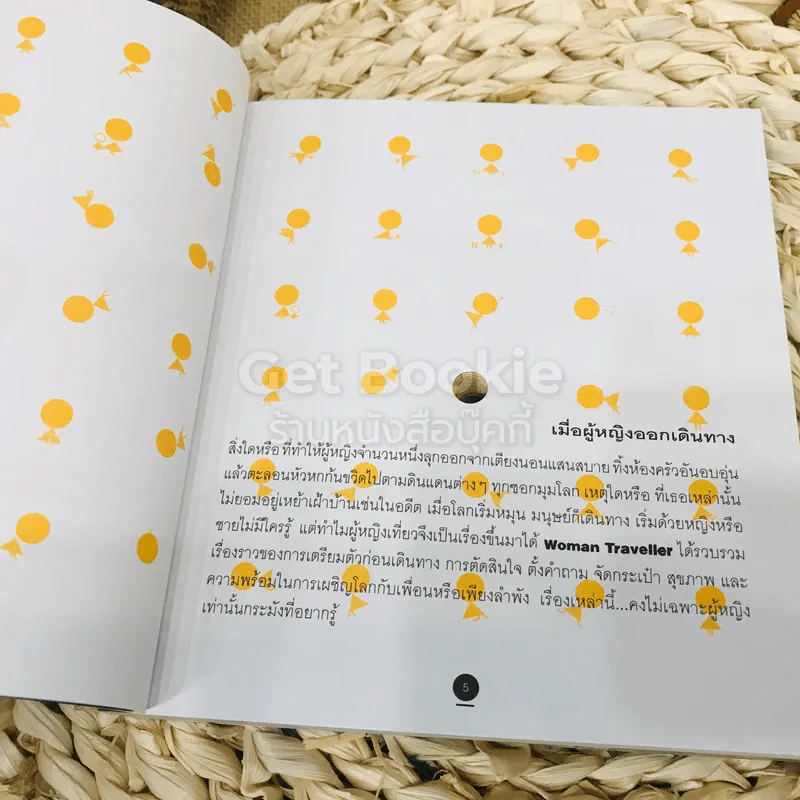 Get Bookie
ร้านหนังสือบุ๊คกี้
เมื่อผู้หญิงออกเดินทาง
สิ่งใดหรือ ที่ทำให้ผู้หญิงจำนวนหนึ่งลุกออกจากเตียงนอนแสนสบาย ทิ้งห้องครัวอันอบอุ่น
แล้วตะลอนหัวหกก้นขวิดไปตามดินแดนต่าง ๆ ทุกซอกมุมโลก เหตุใดหรือ ที่เธอเหล่านั้น
ไม่ยอมอยู่เหย้าเฝ้าบ้านเช่นในอดีต เมื่อโลกเริ่มหมุน มนุษย์ก็เดินทาง เริ่มด้วยหญิงหรือ
ชายไม่มีใครรู้ แต่ทำไมผู้หญิงเที่ยวจึงเป็นเรื่องขึ้นมาได้ Woman Traveller ได้รวบรวม
เรื่องราวของการเตรียมตัวก่อนเดินทาง การตัดสินใจ ตั้งคำถาม จัดกระเป๋า สุขภาพ และ
ความพร้อมในการเผชิญโลกกับเพื่อนหรือเพียงลำพัง เรื่องเหล่านี้...คงไม่เฉพาะผู้หญิง
เท่านั้นกระมังที่อยากรู้
5